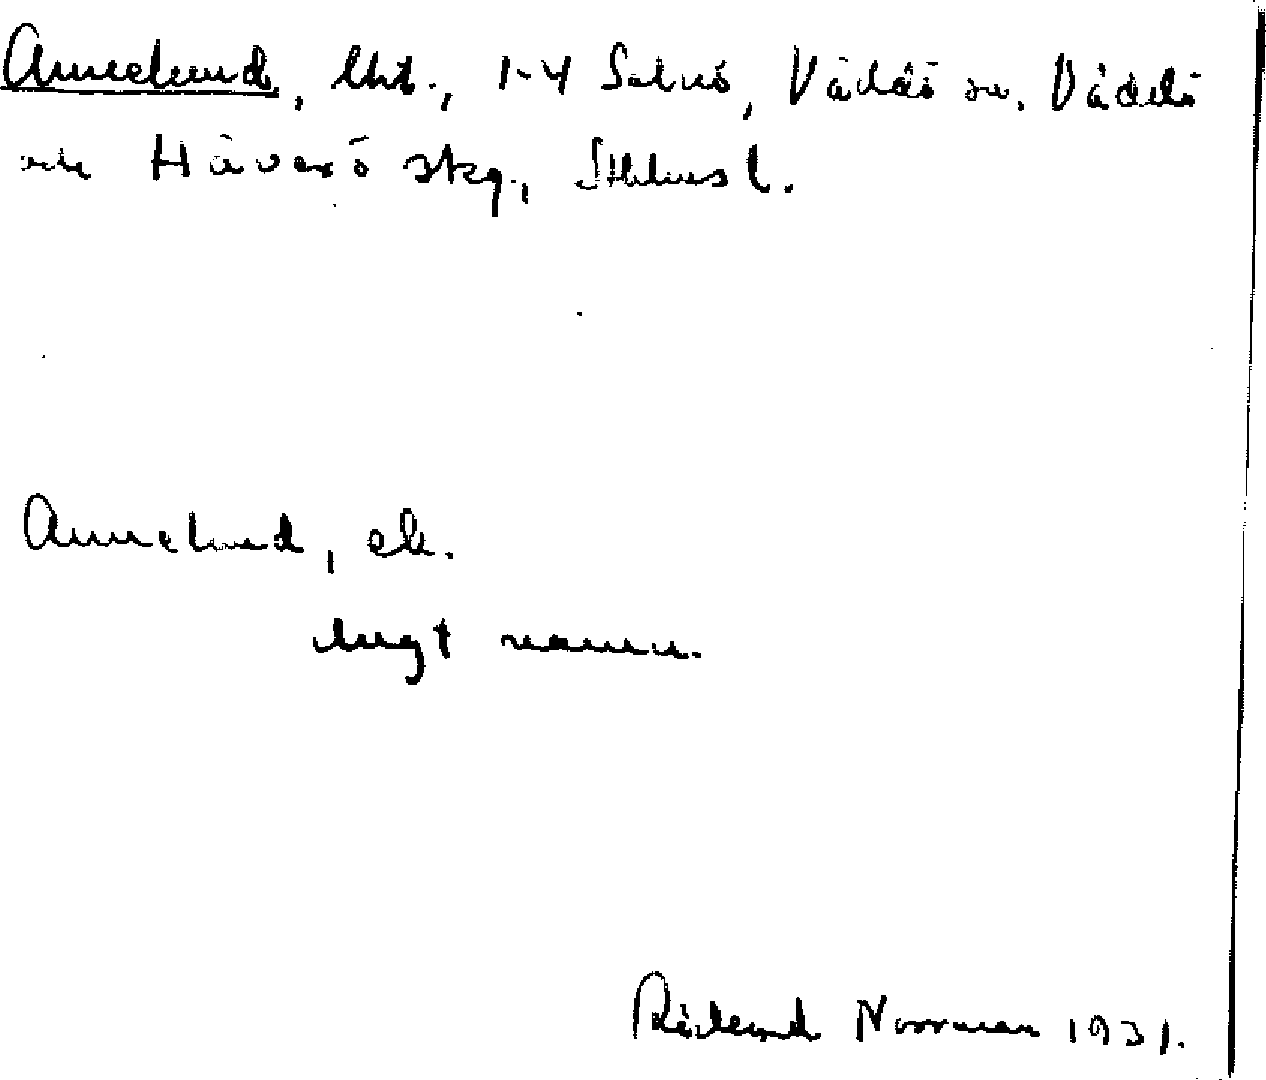 Annelund, lht., 1-4 Solnö, Väddö sn, Väddö
och Häverö skg., Sthlms l.
Annelund, ek.
ungt namn.
Rickard Norrman 1931.